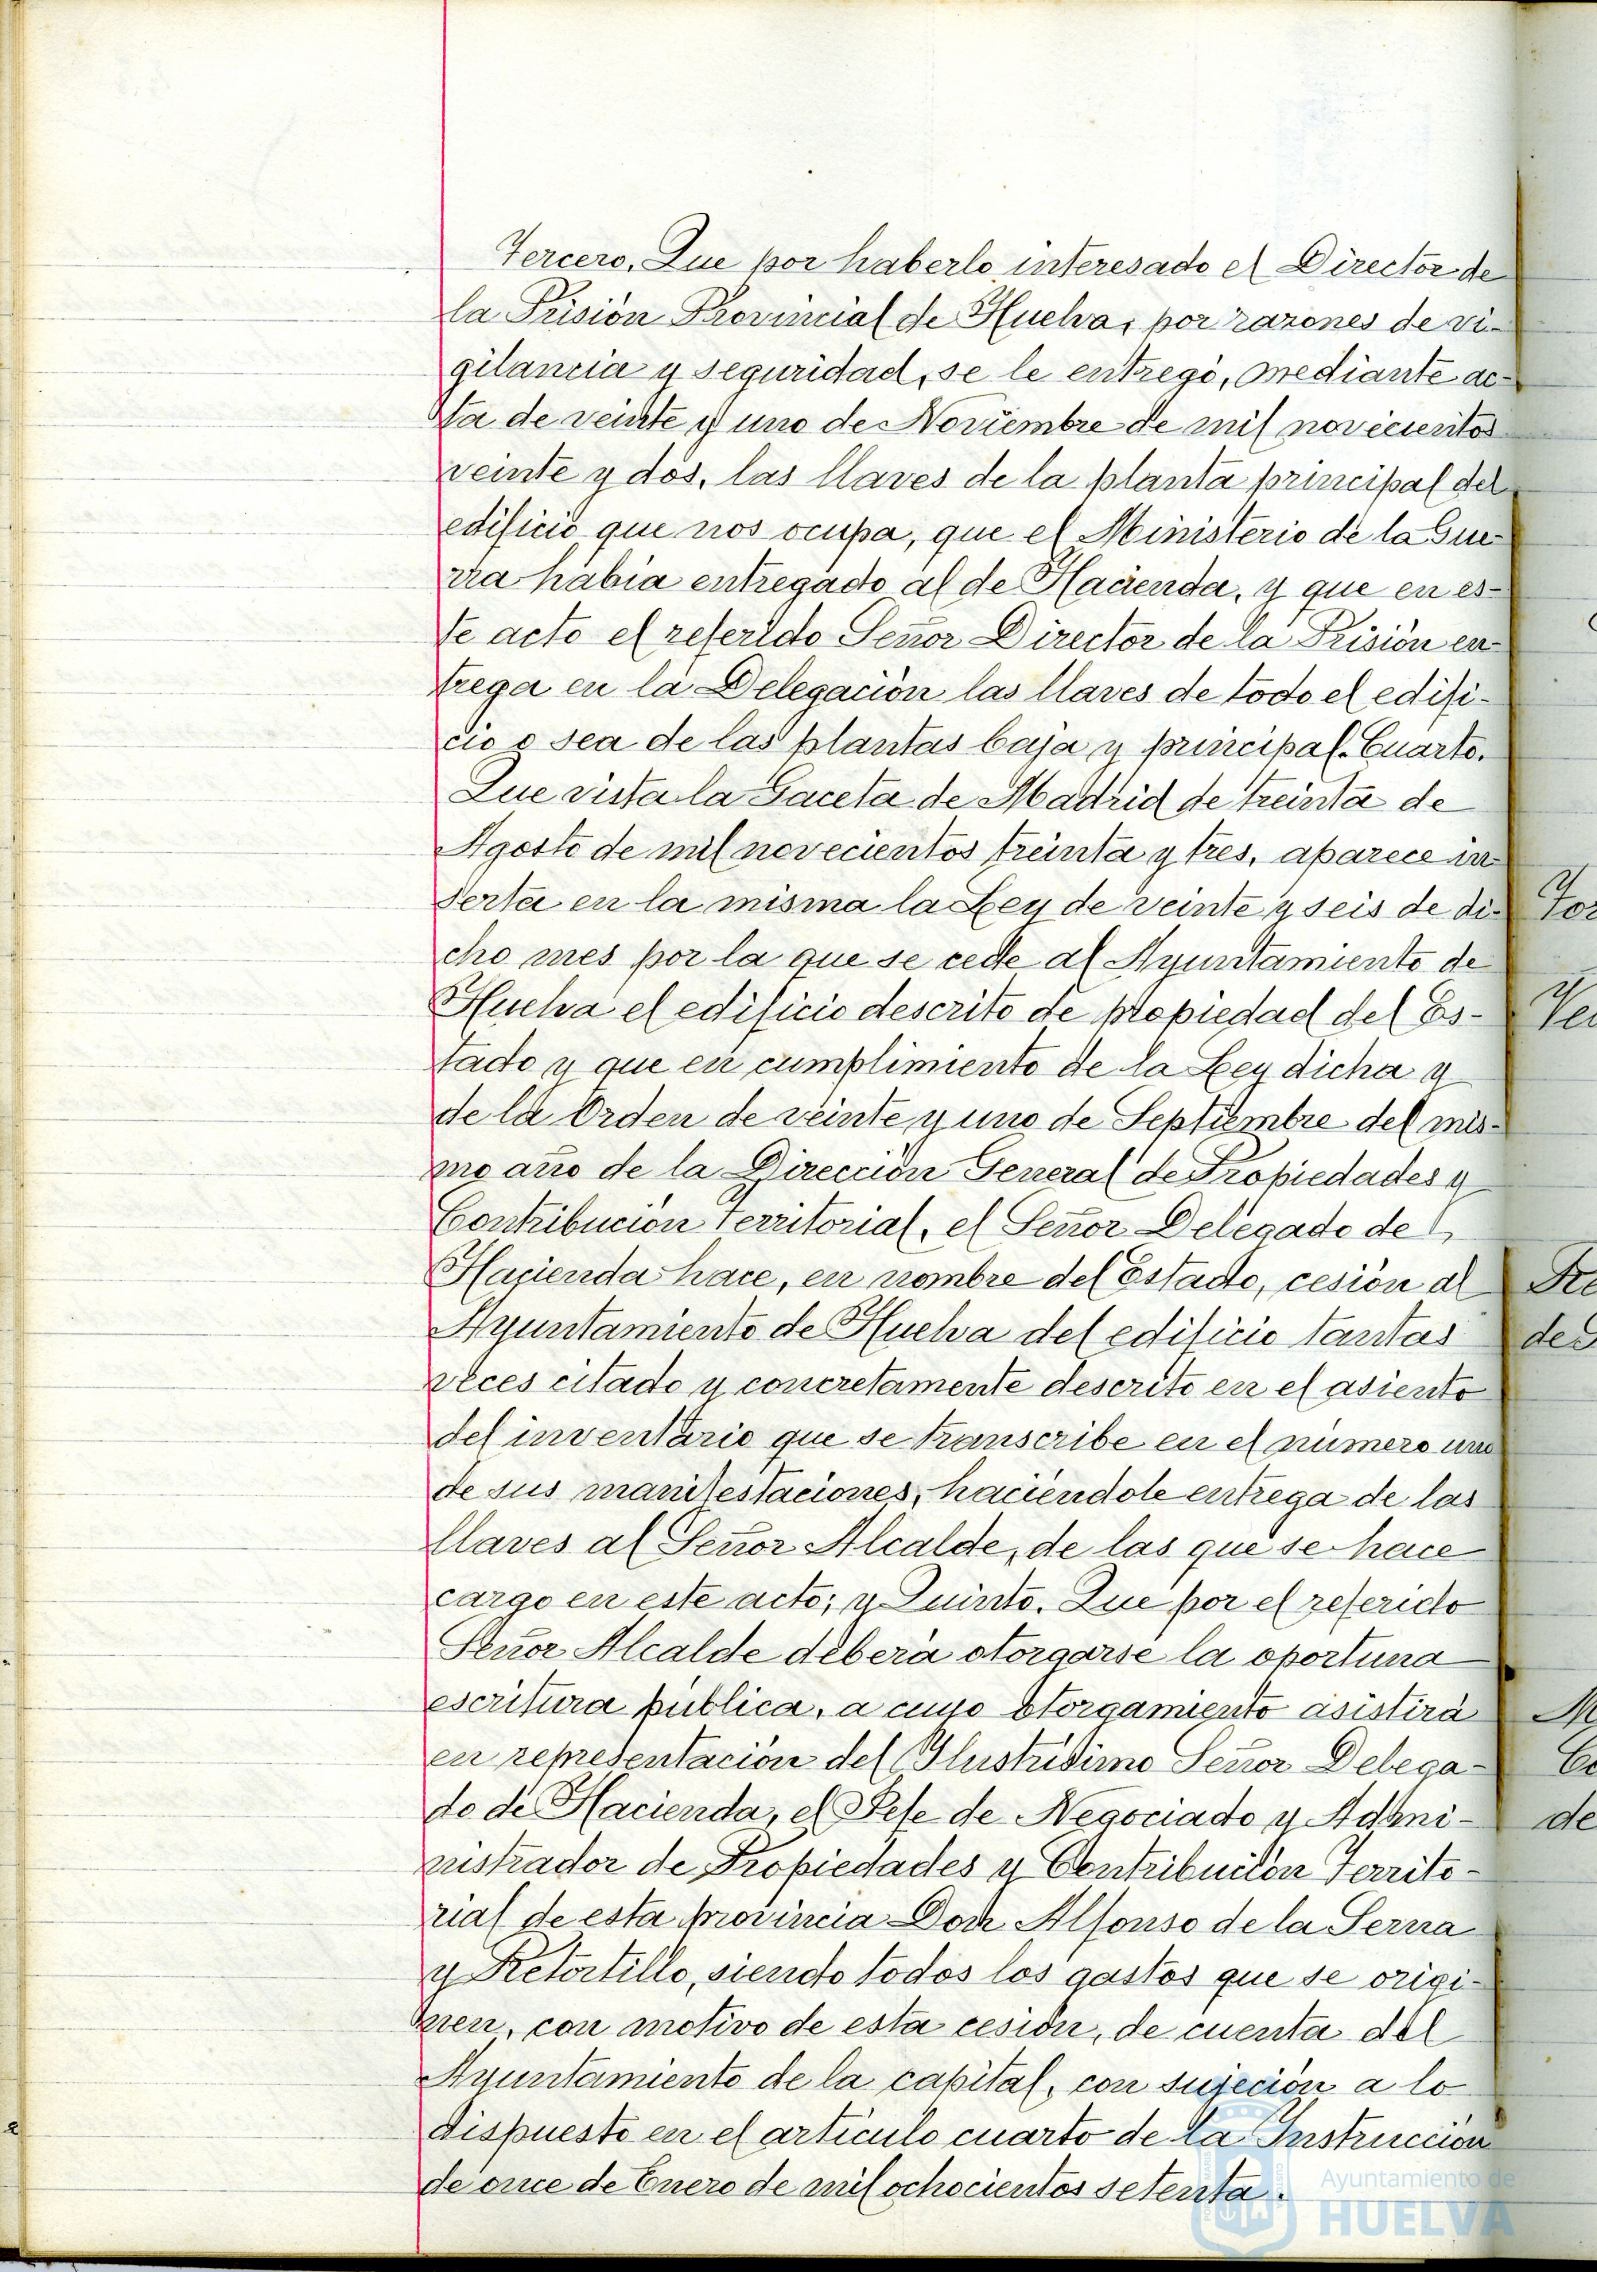 Tercero, Que por haberlo interesado el Director de
la Prisión Provincial de Huelva, por razones de vi-
gilancia y seguridad, se le entregó, mediante ac-
ta de veinte y uno de Noviembre de mil novecientos
veinte y dos, las llaves de la planta principal del
edificio que nos ocupa, que el Ministerio de la Gue-
rra había entregado al de Hacienda, y que en es-
te acto el referido Señor Director de la Prisión en-
trega en la Delegación las llaves de todo el edifi-
cio o sea de las plantas baja y principal. Cuarto.
Que vista la Gaceta de Madrid de treinta de
Agosto de mil novecientos treinta y tres, aparece in-
serta en la misma la Ley de veinte y seis de di-
cho mes por la que se cede al Ayuntamiento de
Huelva el edificio descrito de propiedad del Es-
tado y que en cumplimiento de la Ley dicha y
de la Orden de veinte y uno de Septiembre del mis-
mo año de la Dirección General de Propiedades y
Contribución Territorial, el Señor Delegado de
Hacienda hace, en nombre del Estado, cesión al
Ayuntamiento de Huelva del edificio tantas
veces citado y concretamente descrito en el asiento
del inventario que se transcribe en el número uno
de sus manifestaciones, haciéndole entrega de las
llaves al Señor Alcalde, de las que se hace
cargo en este acto; y Quinto. Que por el referido
Señor Alcalde deberá otorgarse la oportuna
escritura pública, a cuyo otorgamiento asistirá
en representación del Ilustrísimo Señor Delega-
do de Hacienda, el Jefe de Negociado y Admi-
nistrador de Propiedades y Contribución Territo-
rial de esta provincia Don Alfonso de la Serna
y Retortillo, siendo todos los gastos que se origi-
nen, con motivo de esta cesión, de cuenta del
Ayuntamiento de la capital, con sujeción a lo
dispuesto en el artículo cuarto de la Instrucción
de once de Enero de mil ochocientos setenta.
Ayuntamiento de
HUELVA